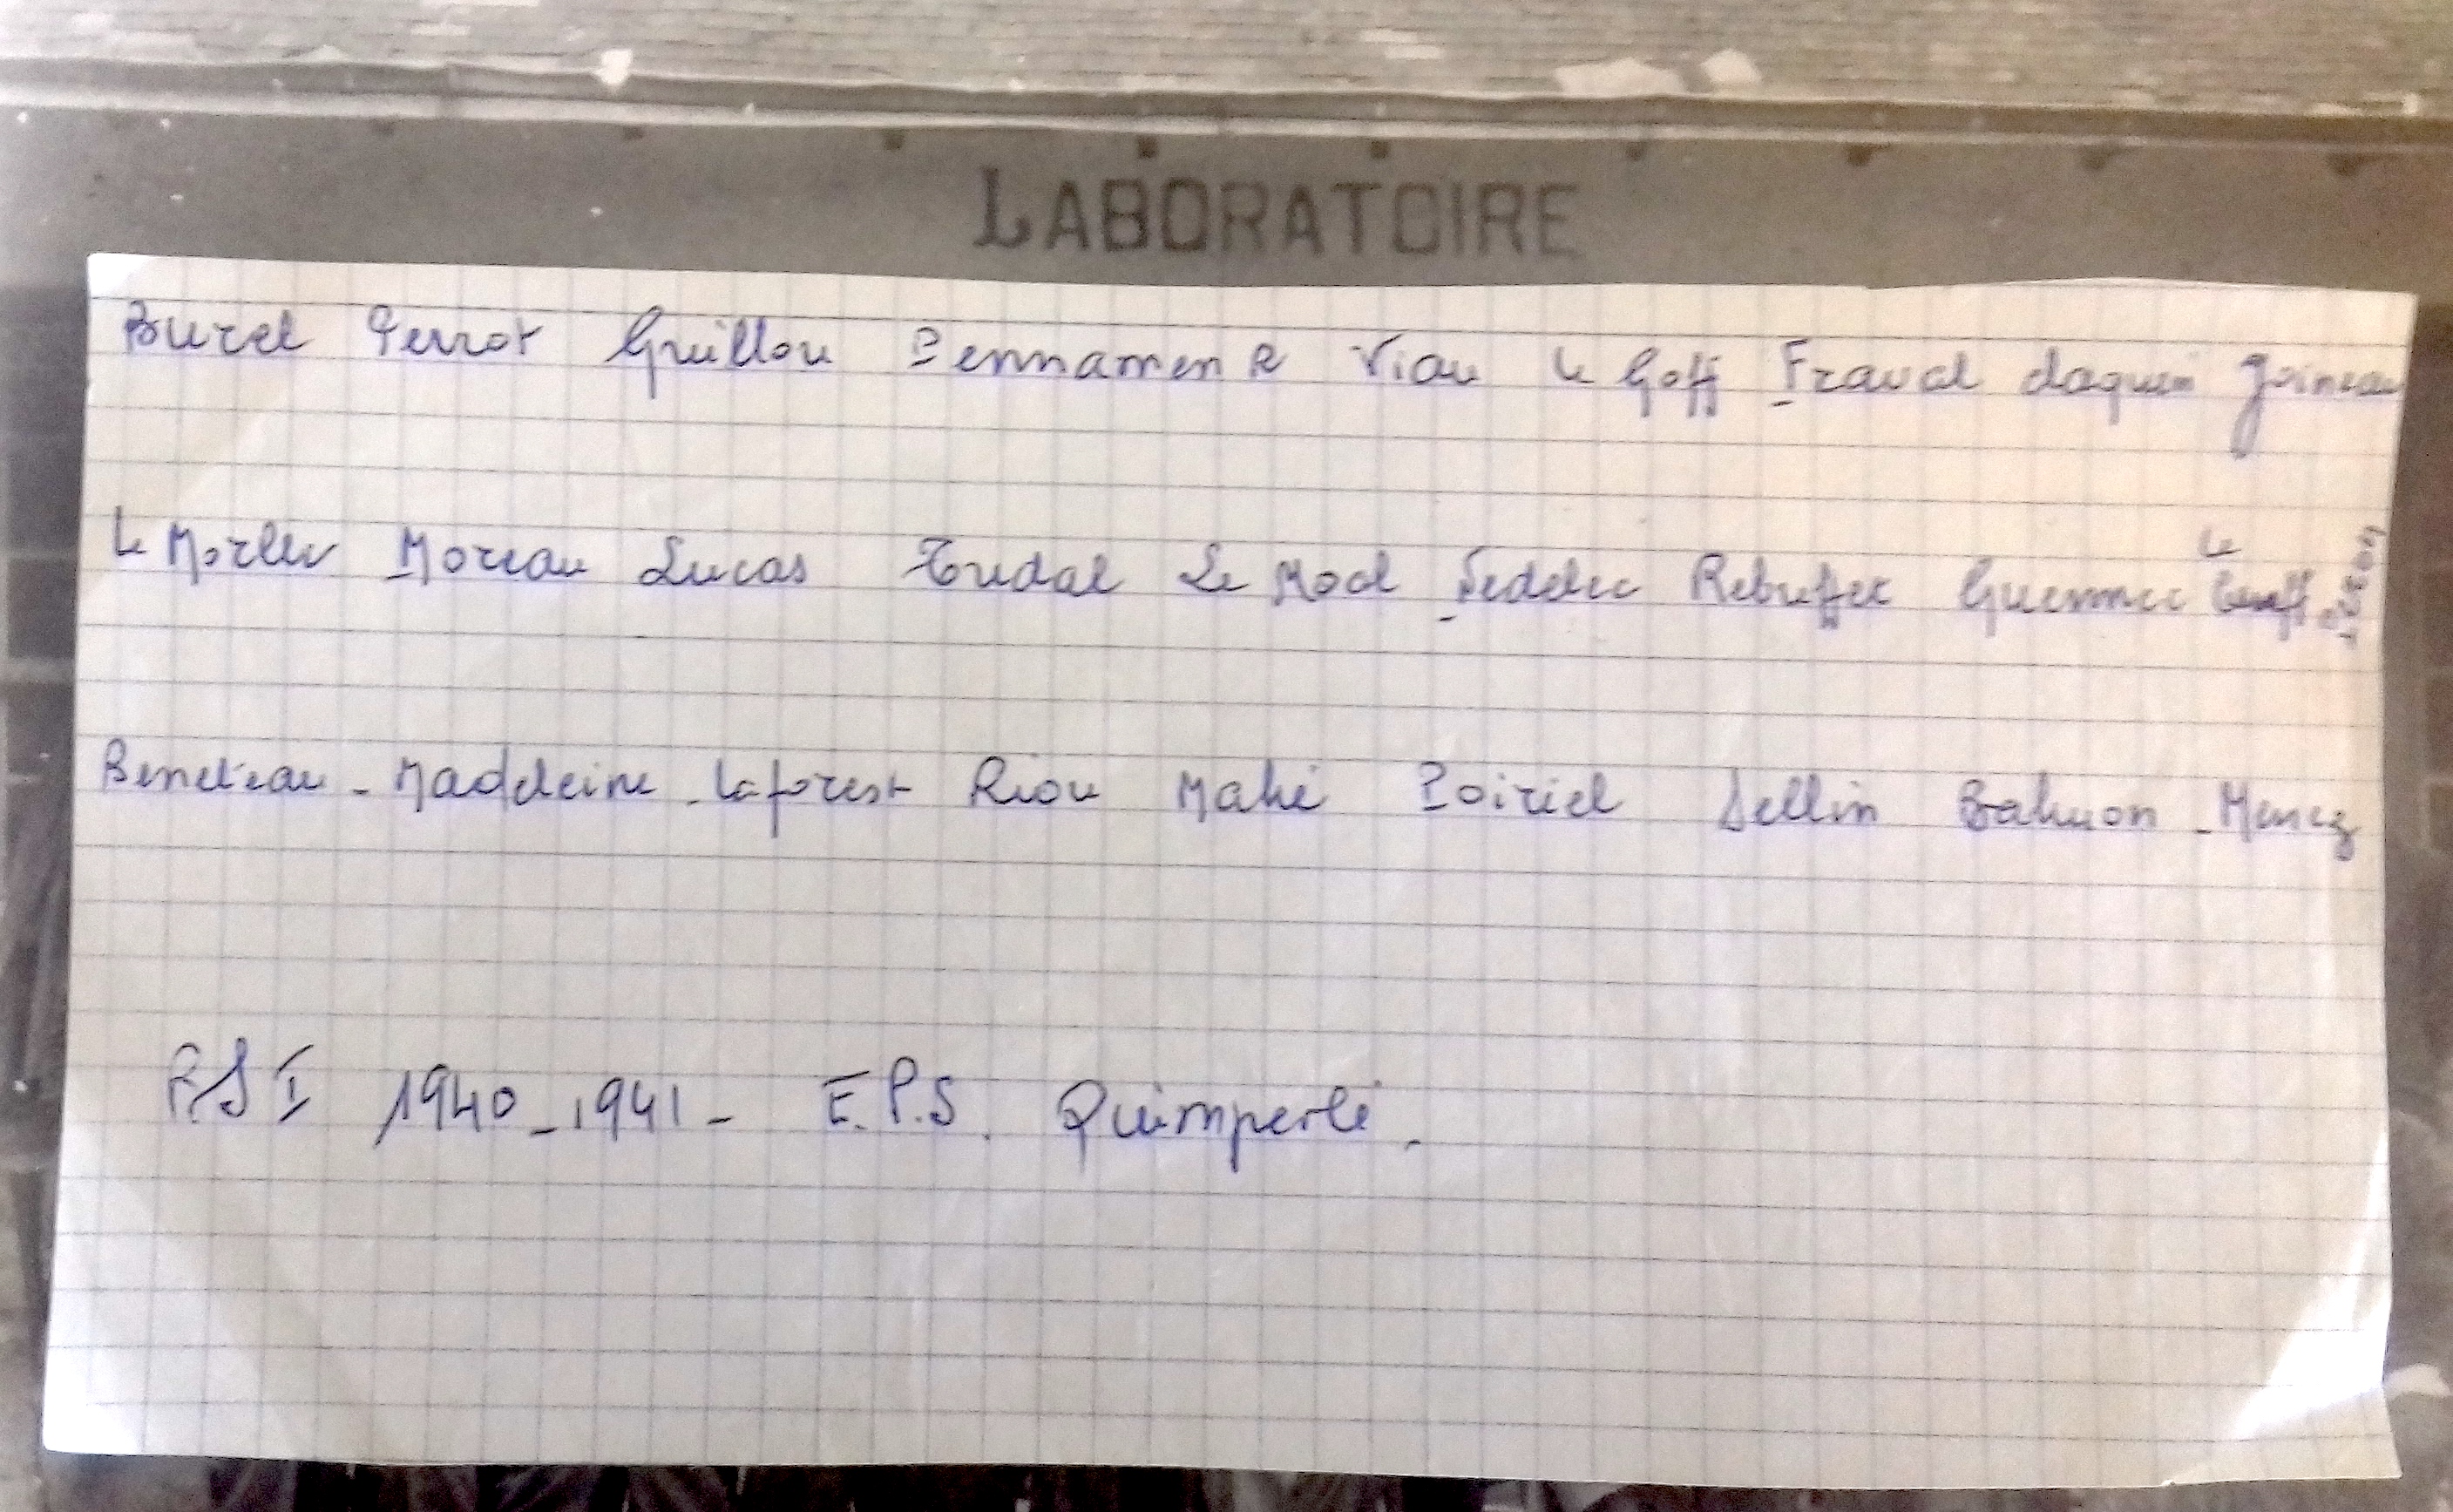 LABORATOIRE
Burel Perrot Guillou Pennamen R Viau Le Goff Fraval daquin Joineau
Le Morlev Moreau Lucas Tudal Le Mael Feddec Rebuffet Guennec Le
Beneteau - Madeleine - Laforest Riou Mahé Poiriel Sellin Bahuon - Menez
P.S I 1940-1941 - E.P.S. Quimperlé.